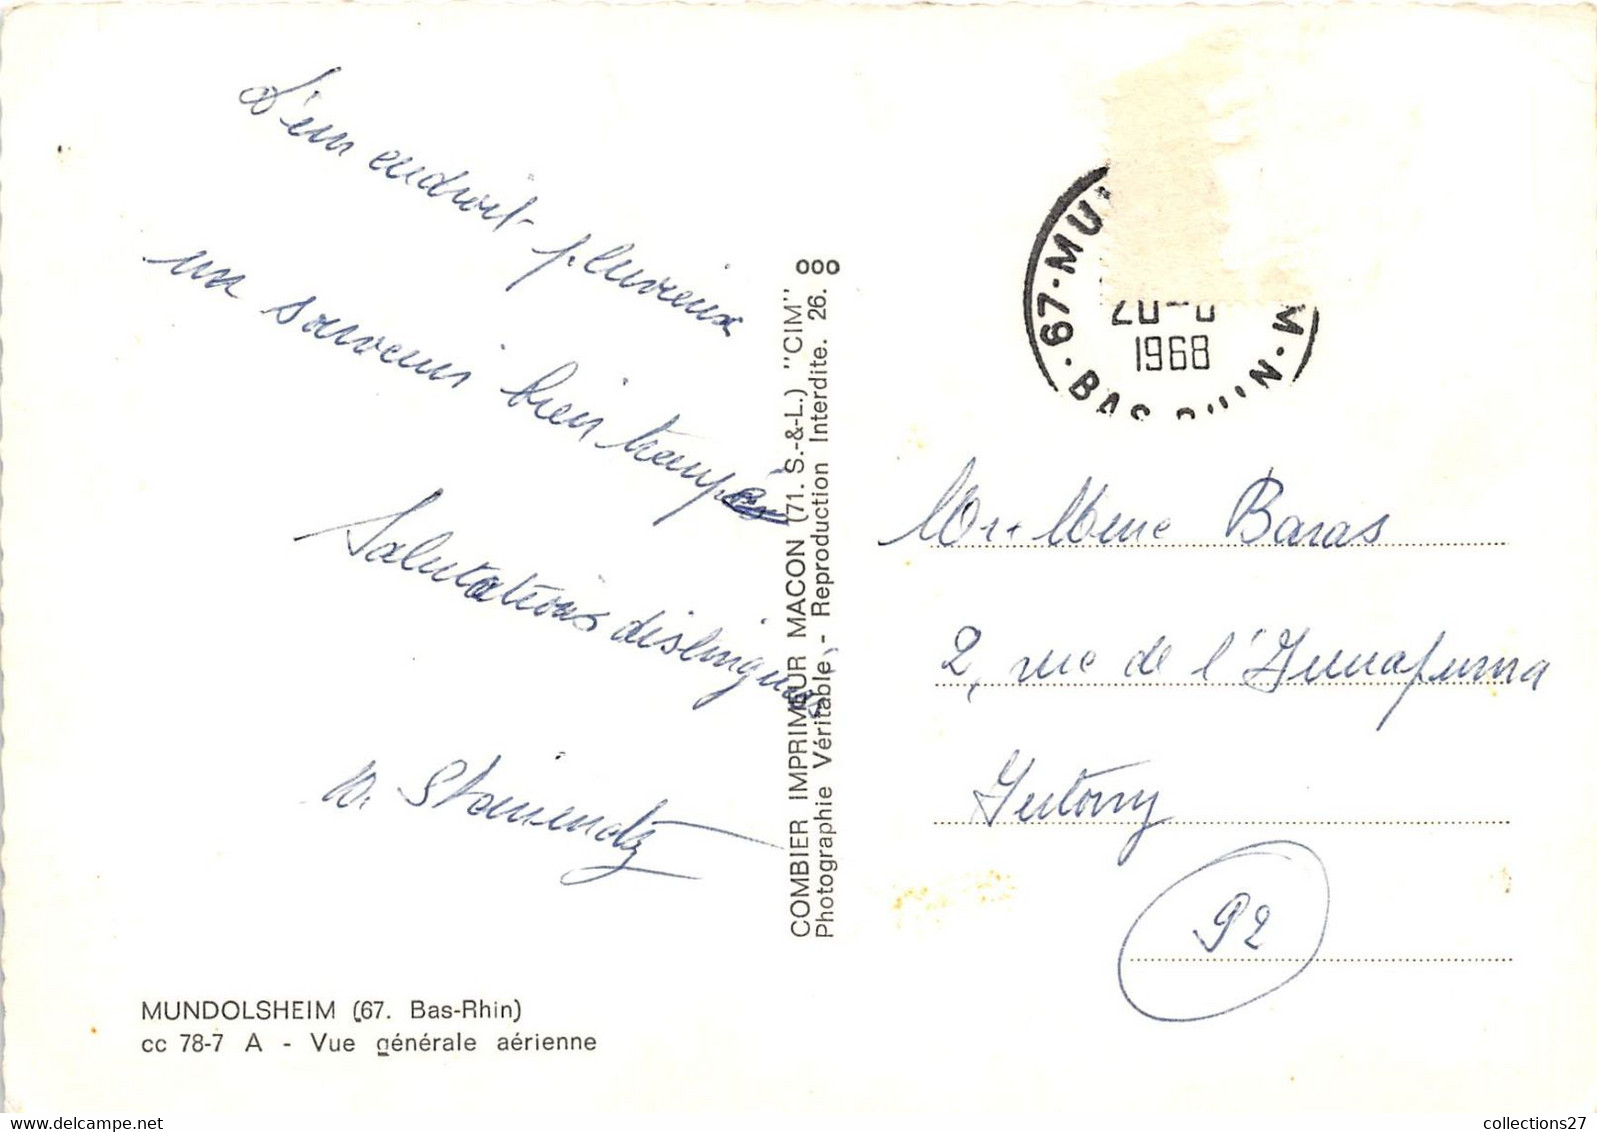 D'un endroit pluvieux
un souvenir bien trempé
Salutations distinguées
MUNDOLSHEIM (67. Bas-Rhin)
cc 78-7 A - Vue générale aérienne
COMBIER IMPRIMEUR MACON (71. S.-&-L.) "CIM"
Photographie Véritable - Reproduction Interdite. 26.
67 · MU M · BAS RHIN
1968
Mr + Mme Baras
2, rue de l'
Antony
92
collections27